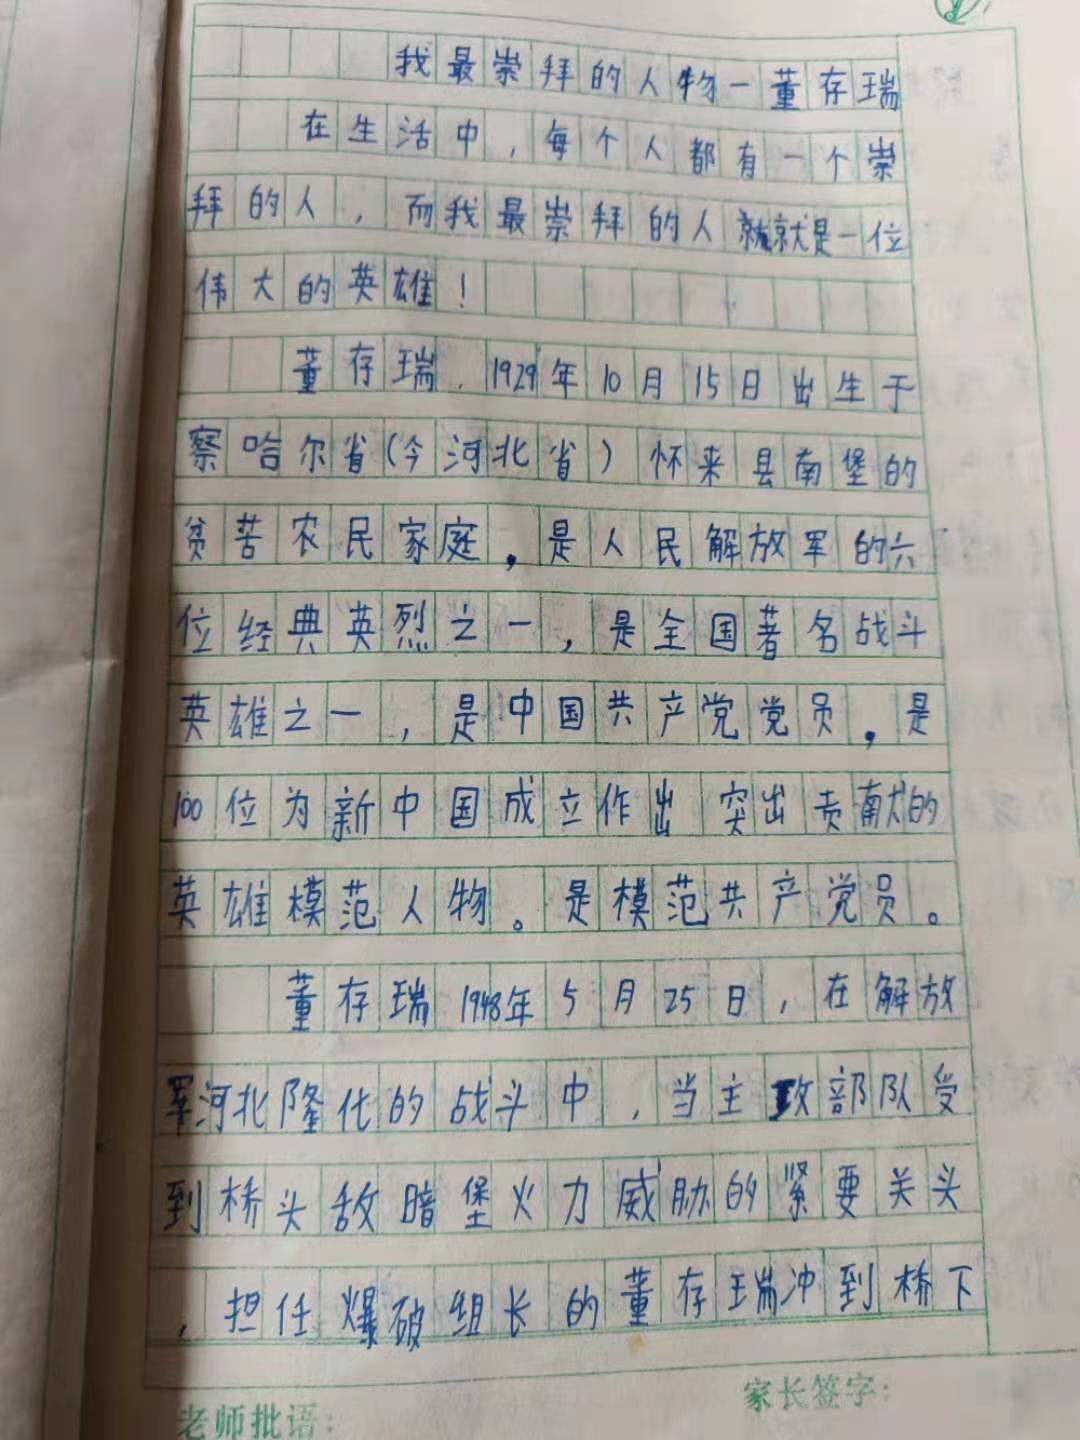 我最崇拜的人物一董存瑞
在生活中，每个人都有一个崇
拜的人，而我最崇拜的人就就是一位
伟大的英雄！
董存瑞，1929年10月15日出生于
察哈尔省(今河北省）怀来县南堡的
贫苦农民家庭，是人民解放军的六
位经典英烈之一，是全国著名战斗
英雄之一，是中国共产党党员，是
100位为新中国成立作出突出贡献的
英雄模范人物。是模范共产党员。
董存瑞1948年5月25日，在解放
军河北隆化的战斗中，当主攻部队受
到桥头敌暗堡火力威胁的紧要关头
，担任爆破组长的董存瑞冲到桥下
家长签字：
老师批语：